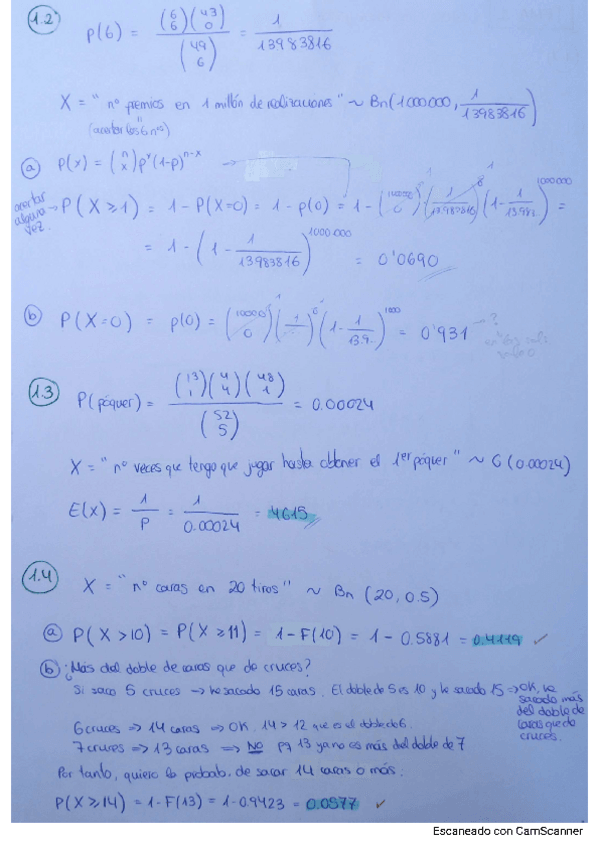 1.2
P(6) = (6 6)(43 0) / (49 6) = 1 / 13983816
X = "nº premios en 1 millón de realizaciones" ~ Bn(1000000, 1/13983816)
(acertar los 6 nºs)
a) P(x) = (n x) p^x (1-p)^(n-x) →
acertar alguna vez. → P(X ≥ 1) = 1 - P(X=0) = 1 - p(0) = 1 - (
= 1 - (1 - 1/13983816)^1000.000 = 0'0690
b) P(X=0) = p(0) = (
0 = 0'931 → ?
1.3
P(póquer) = (13 1)(4 4)(48 1) / (52 5) = 0.00024
X = "nº veces que tengo que jugar hasta obtener el 1er póquer" ~ G(0.00024)
E(X) = 1/P = 1/0.00024 = 4615
1.4
X = "nº caras en 20 tiros" ~ Bn (20, 0.5)
a) P(X > 10) = P(X ≥ 11) = 1 - F(10) = 1 - 0.5881 = 0.4119 ✓
b) ¿Más del doble de caras que de cruces?
Si saco 5 cruces → he sacado 15 caras. El doble de 5 es 10 y he sacado 15 ⇒ OK, he sacado más del doble de caras que de cruces.
6 cruces → 14 caras ⇒ OK. 14 > 12 que es el doble de 6.
7 cruces → 13 caras ⇒ NO pq 13 ya no es más del doble de 7
Por tanto, quiero la probab. de sacar 14 caras o más.
P(X ≥ 14) = 1 - F(13) = 1 - 0.9423 = 0.0577 ✓
Escaneado con CamScanner